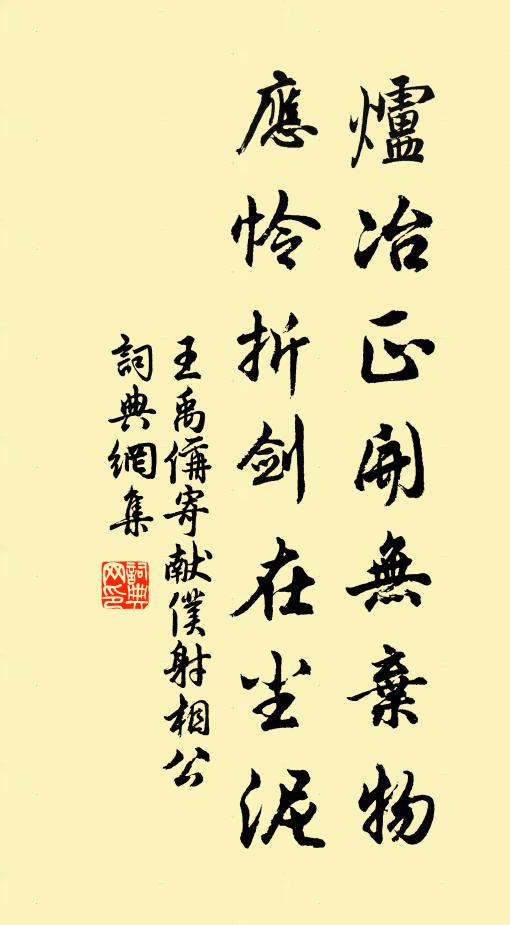 爐冶正開無棄物
應怜折剑在尘泥
王禹偁寄献僕射相公
詞典網集
詞典网印